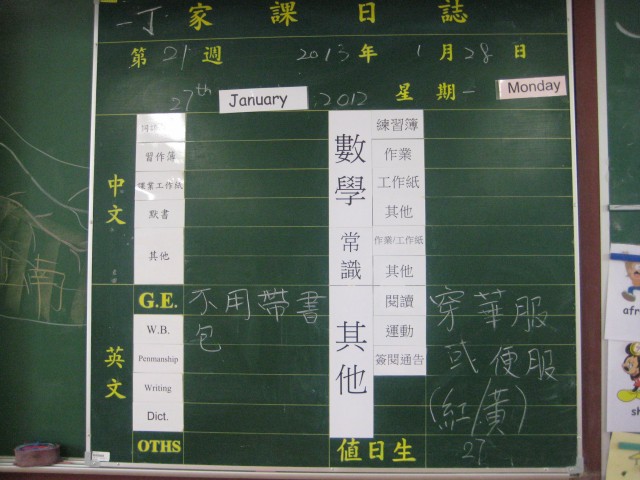 一丁 家課日誌
第 21 週 2013 年 1 月 28 日
27th January 2012 星期一 Monday
中文
習作簿
課業工作紙
默書
其他
數學
練習簿
作業
工作紙
其他
常識
作業/工作紙
其他
英文
G.E.
W.B.
Penmanship
Writing
Dict.
OTHS
不用帶書
包
其他
閱讀
運動
簽閱通告
穿華服
或便服
(紅/黃)
值日生 27
afr
sh